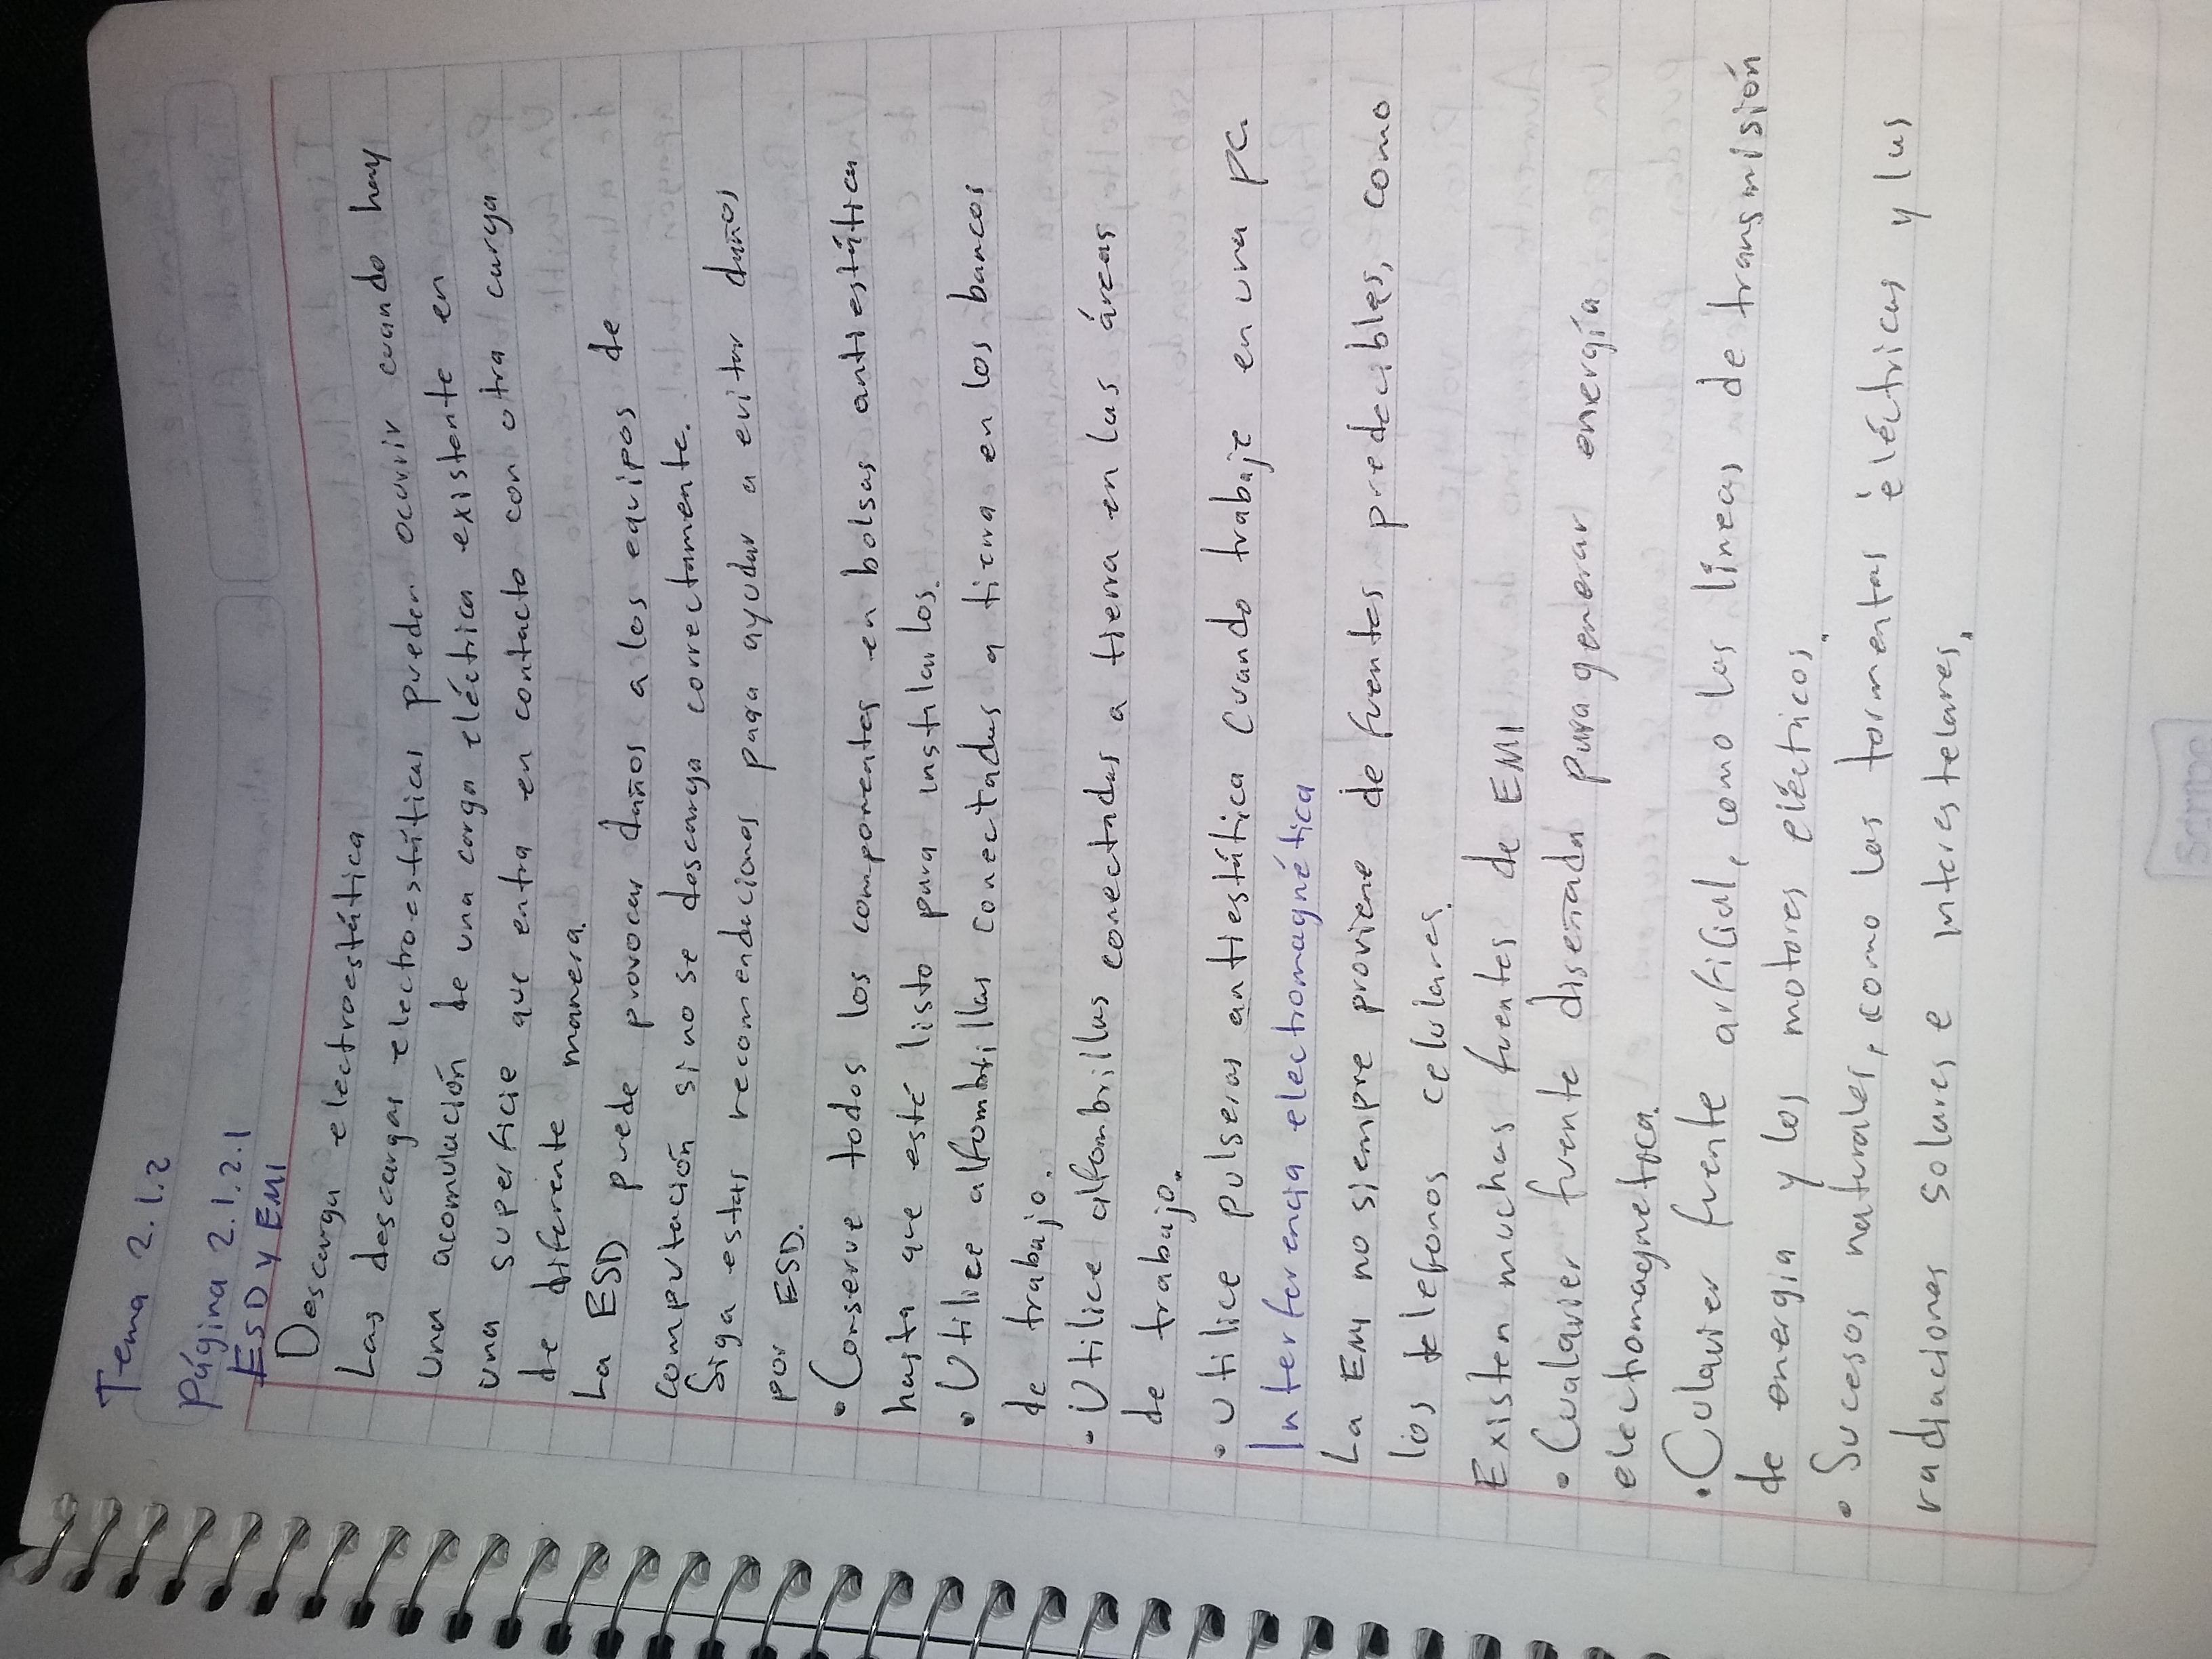 Tema 2.1.2
Página 2.1.2.1
ESD y EMI
Descarga electroestática
Las descargas electroestáticas pueden ocurrir cuando hay
una acomulación de una carga eléctrica existente en
una superficie que entra en contacto con otra carga
de diferente manera.
La ESD puede provocar daños a los equipos de
computación si no se descarga correctamente.
Siga estas recomendaciones para ayudar a evitar daños
por ESD.
• Conserve todos los componentes en bolsas antiestática
hasta que esté listo para instalarlos.
• Utilice alfombrillas conectadas a tierra en los bancos
de trabajo.
• Utilice alfombrillas conectadas a tierra en las áreas
de trabajo.
• Utilice pulseras antiestática cuando trabaje en una pc.
Interferencia electromagnética
La EMI no siempre proviene de fuentes predecibles, como
los telefonos celulares.
Existen muchas fuentes de EMI
• Cualquier fuente diseñada para generar energía
electromagnetica.
• Culquier fuente artificial, como las líneas de transmisión
de energia y los motores eléctricos.
• Sucesos naturales, como las tormentas eléctricas y las
radiaciones solares e interestelares.
Scribe